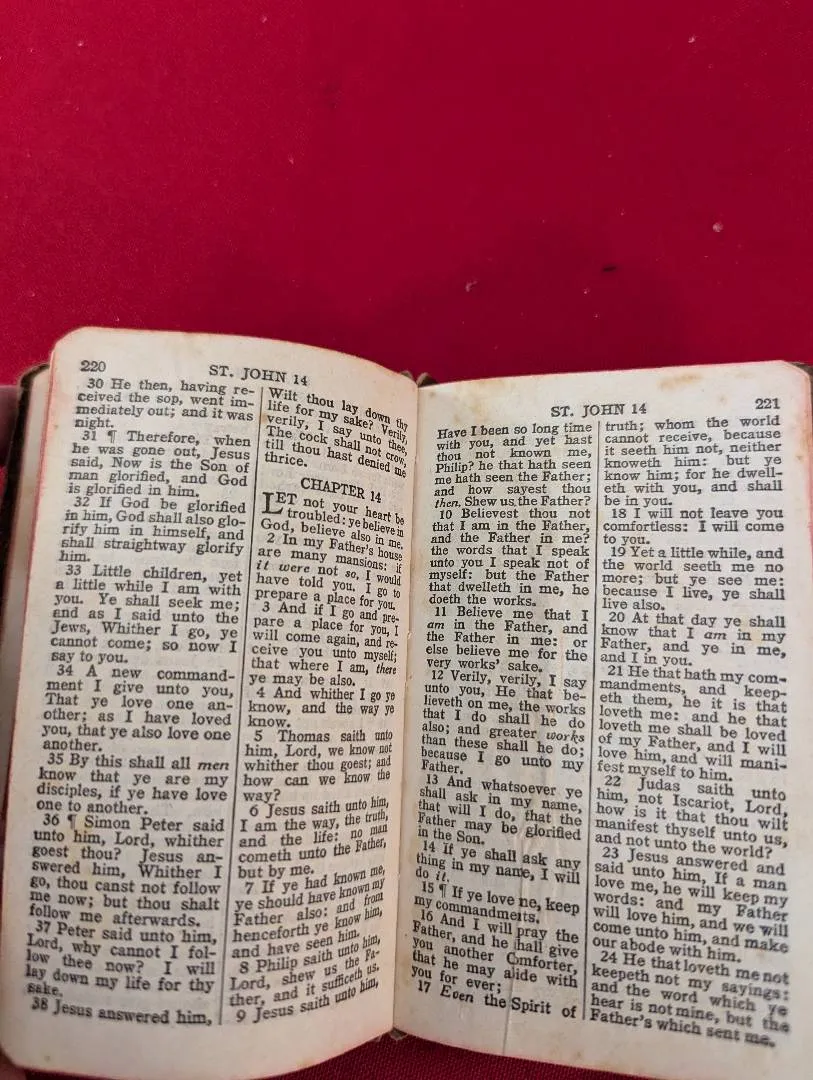 220
ST. JOHN 14
30 He then, having re-
ceived the sop, went im-
mediately out; and it was
night.
31 ¶ Therefore, when
he was gone out, Jesus
said, Now is the Son of
man glorified, and God
is glorified in him.
32 If God be glorified
in him, God shall also glo-
rify him in himself, and
shall straightway glorify
him.
33 Little children, yet
a little while I am with
you. Ye shall seek me;
and as I said unto the
Jews, Whither I go, ye
cannot come; so now I
say to you.
34 A new command-
ment I give unto you,
That ye love one an-
other; as I have loved
you, that ye also love one
another.
35 By this shall all men
know that ye are my
disciples, if ye have love
one to another.
36 ¶ Simon Peter said
unto him, Lord, whither
goest thou? Jesus an-
swered him, Whither I
go, thou canst not follow
me now; but thou shalt
follow me afterwards.
37 Peter said unto him,
Lord, why cannot I fol-
low thee now? I will
lay down my life for thy
sake.
38 Jesus answered him,
Wilt thou lay down thy
life for my sake? Verily,
verily, I say unto thee,
The cock shall not crow,
till thou hast denied me
thrice.
CHAPTER 14
LET not your heart be
troubled: ye believe in
God, believe also in me.
2 In my Father's house
are many mansions: if
it were not so, I would
have told you. I go to
prepare a place for you.
3 And if I go and pre-
pare a place for you, I
will come again, and re-
ceive you unto myself;
that where I am, there
ye may be also.
4 And whither I go ye
know, and the way ye
know.
5 Thomas saith unto
him, Lord, we know not
whither thou goest; and
how can we know the
way?
6 Jesus saith unto him,
I am the way, the truth,
and the life: no man
cometh unto the Father,
but by me.
7 If ye had known me,
ye should have known my
Father also: and from
henceforth ye know him,
and have seen him.
8 Philip saith unto him,
Lord, shew us the Fa-
ther, and it sufficeth us.
9 Jesus saith unto him,
ST. JOHN 14
221
Have I been so long time
with you, and yet hast
thou not known me,
Philip? he that hath seen
me hath seen the Father;
and how sayest thou
then, Shew us the Father?
10 Believest thou not
that I am in the Father,
and the Father in me?
the words that I speak
unto you I speak not of
myself: but the Father
that dwelleth in me, he
doeth the works.
11 Believe me that I
am in the Father, and
the Father in me: or
else believe me for the
very works' sake.
12 Verily, verily, I say
unto you, He that be-
lieveth on me, the works
that I do shall he do
also; and greater works
than these shall he do;
because I go unto my
Father.
13 And whatsoever ye
shall ask in my name,
that will I do, that the
Father may be glorified
in the Son.
14 If ye shall ask any
thing in my name, I will
do it.
15 ¶ If ye love me, keep
my commandments.
16 And I will pray the
Father, and he shall give
you another Comforter,
that he may abide with
you for ever;
17 Even the Spirit of
truth; whom the world
cannot receive, because
it seeth him not, neither
knoweth him: but ye
know him; for he dwell-
eth with you, and shall
be in you.
18 I will not leave you
comfortless: I will come
to you.
19 Yet a little while, and
the world seeth me no
more; but ye see me:
because I live, ye shall
live also.
20 At that day ye shall
know that I am in my
Father, and ye in me,
and I in you.
21 He that hath my com-
mandments, and keep-
eth them, he it is that
loveth me: and he that
loveth me shall be loved
of my Father, and I will
love him, and will mani-
fest myself to him.
22 Judas saith unto
him, not Iscariot, Lord,
how is it that thou wilt
manifest thyself unto us,
and not unto the world?
23 Jesus answered and
said unto him, If a man
love me, he will keep my
words: and my Father
will love him, and we will
come unto him, and make
our abode with him.
24 He that loveth me not
keepeth not my sayings:
and the word which ye
hear is not mine, but the
Father's which sent me.